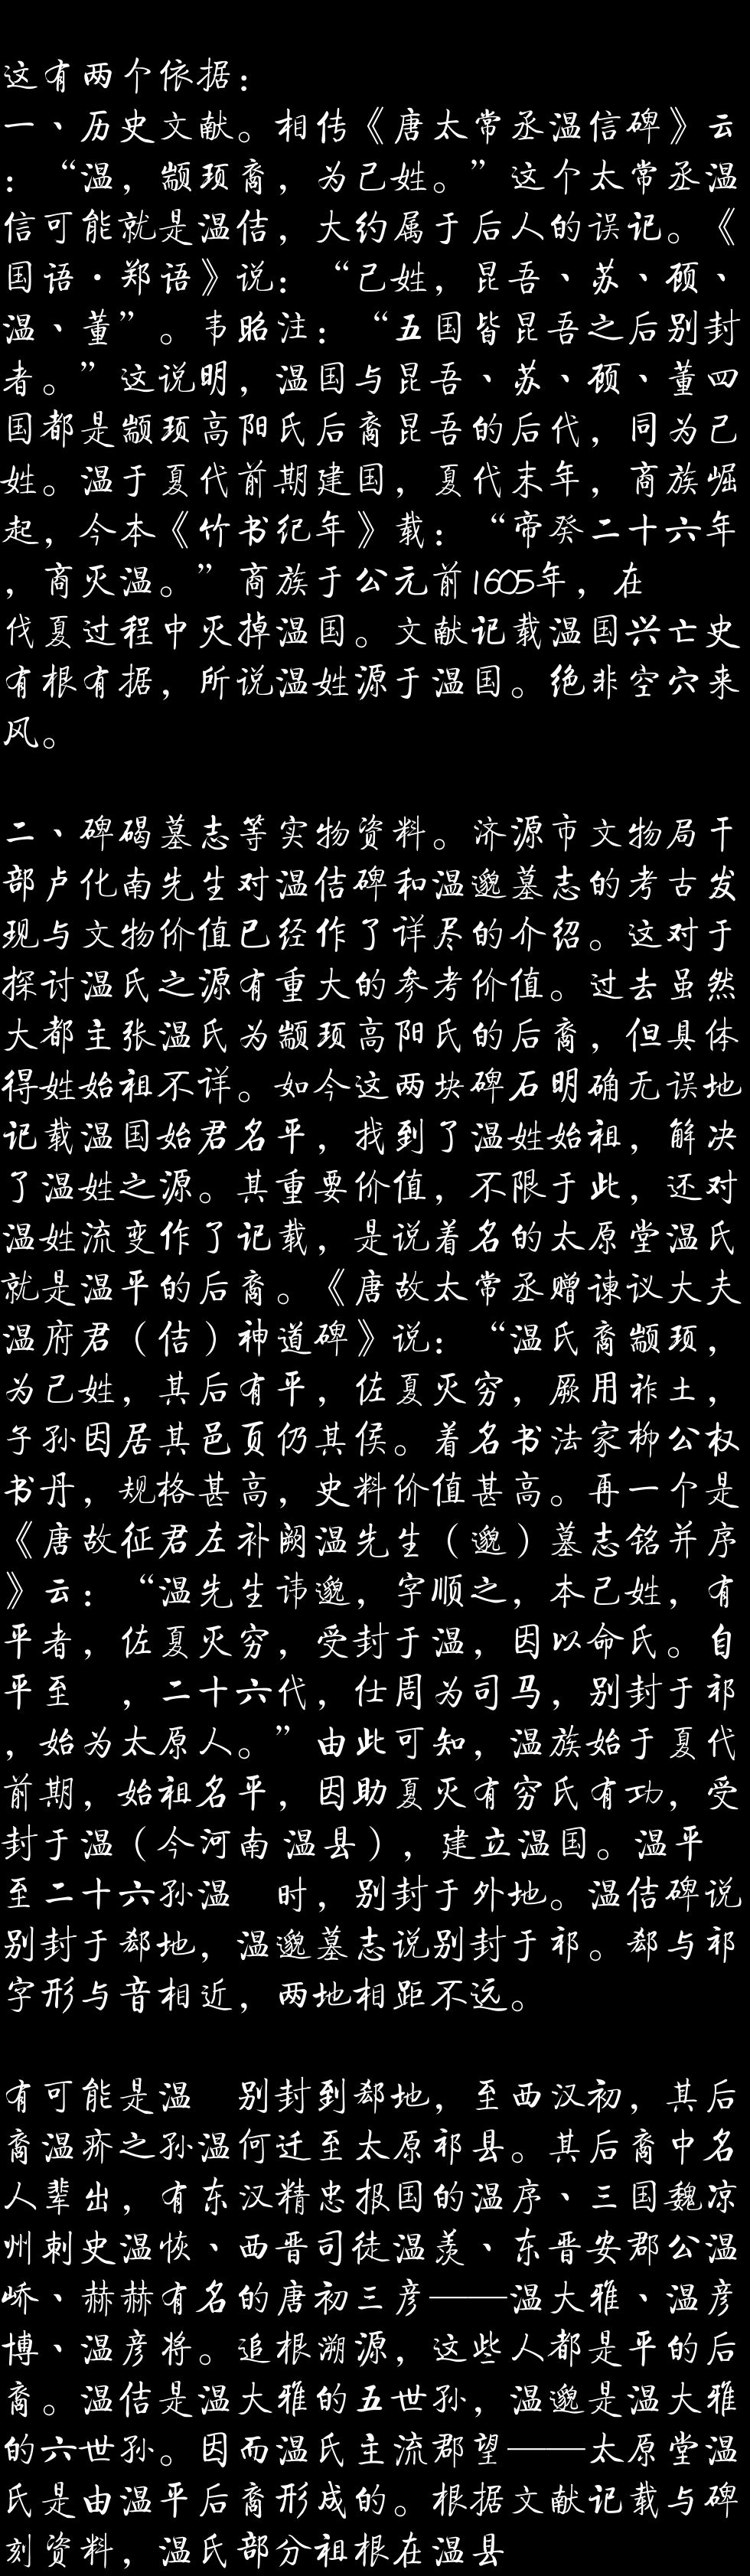 这有两个依据：
一、历史文献。相传《唐太常丞温信碑》云
：“温，颛顼裔，为己姓。”这个太常丞温
信可能就是温佶，大约属于后人的误记。《
国语·郑语》说：“己姓，昆吾、苏、顾、
温、董”。韦昭注：“五国皆昆吾之后别封
者。”这说明，温国与昆吾、苏、顾、董四
国都是颛顼高阳氏后裔昆吾的后代，同为己
姓。温于夏代前期建国，夏代末年，商族崛
起，今本《竹书纪年》载：“帝癸二十六年
，商灭温。”商族于公元前1605年，在
伐夏过程中灭掉温国。文献记载温国兴亡史
有根有据，所说温姓源于温国。绝非空穴来
风。
二、碑碣墓志等实物资料。济源市文物局干
部卢化南先生对温佶碑和温邈墓志的考古发
现与文物价值已经作了详尽的介绍。这对于
探讨温氏之源有重大的参考价值。过去虽然
大都主张温氏为颛顼高阳氏的后裔，但具体
得姓始祖不详。如今这两块碑石明确无误地
记载温国始君名平，找到了温姓始祖，解决
了温姓之源。其重要价值，不限于此，还对
温姓流变作了记载，是说着名的太原堂温氏
就是温平的后裔。《唐故太常丞赠谏议大夫
温府君（佶）神道碑》说：“温氏裔颛顼，
为己姓，其后有平，佐夏灭穷，厥用祚土，
子孙因居其邑页仍其侯。着名书法家柳公权
书丹，规格甚高，史料价值甚高。再一个是
《唐故征君左补阙温先生（邈）墓志铭并序
》云：“温先生讳邈，字顺之，本己姓，有
平者，佐夏灭穷，受封于温，因以命氏。自
平至　，二十六代，仕周为司马，别封于祁
，始为太原人。”由此可知，温族始于夏代
前期，始祖名平，因助夏灭有穷氏有功，受
封于温（今河南温县），建立温国。温平
至二十六孙温　时，别封于外地。温佶碑说
别封于郄地，温邈墓志说别封于祁。郄与祁
字形与音相近，两地相距不远。
有可能是温　别封到郄地，至西汉初，其后
裔温疥之孙温何迁至太原祁县。其后裔中名
人辈出，有东汉精忠报国的温序、三国魏凉
州刺史温恢、西晋司徒温羡、东晋安郡公温
峤、赫赫有名的唐初三彦——温大雅、温彦
博、温彦将。追根溯源，这些人都是平的后
裔。温佶是温大雅的五世孙，温邈是温大雅
的六世孙。因而温氏主流郡望——太原堂温
氏是由温平后裔形成的。根据文献记载与碑
刻资料，温氏部分祖根在温县